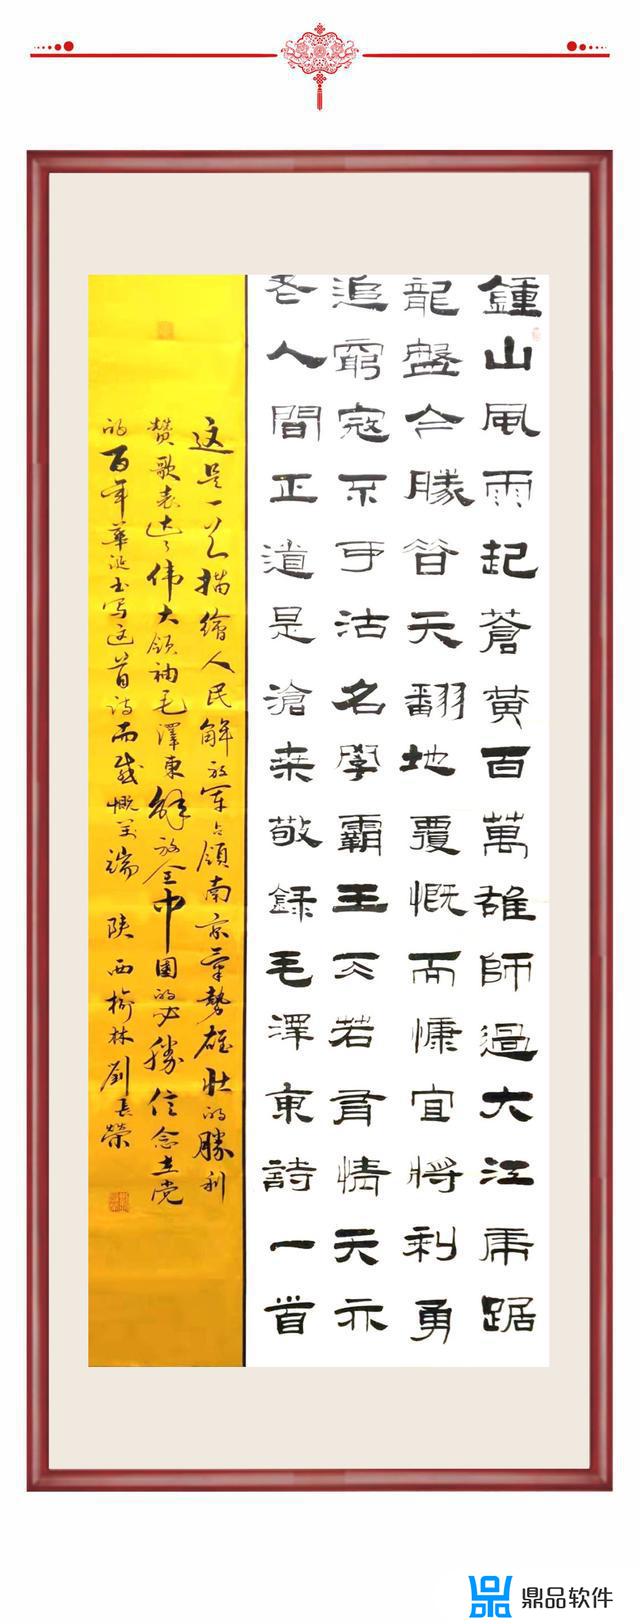 鍾山風雨起蒼黄百萬雄師過大江虎踞
龍盤今勝昔天翻地覆慨而慷宜將利勇
追窮寇不可沽名學霸王天若有情天亦
老人間正道是滄桑敬録毛澤東詩一首
这是一首描繪人民解放军占領南京氣勢雄壮的勝利
赞歌表达了伟大领袖毛澤東解放全中国的必勝信念在党
的百年華诞书写这首诗而感慨万端 陕西榆林劉長榮
鼎品软件